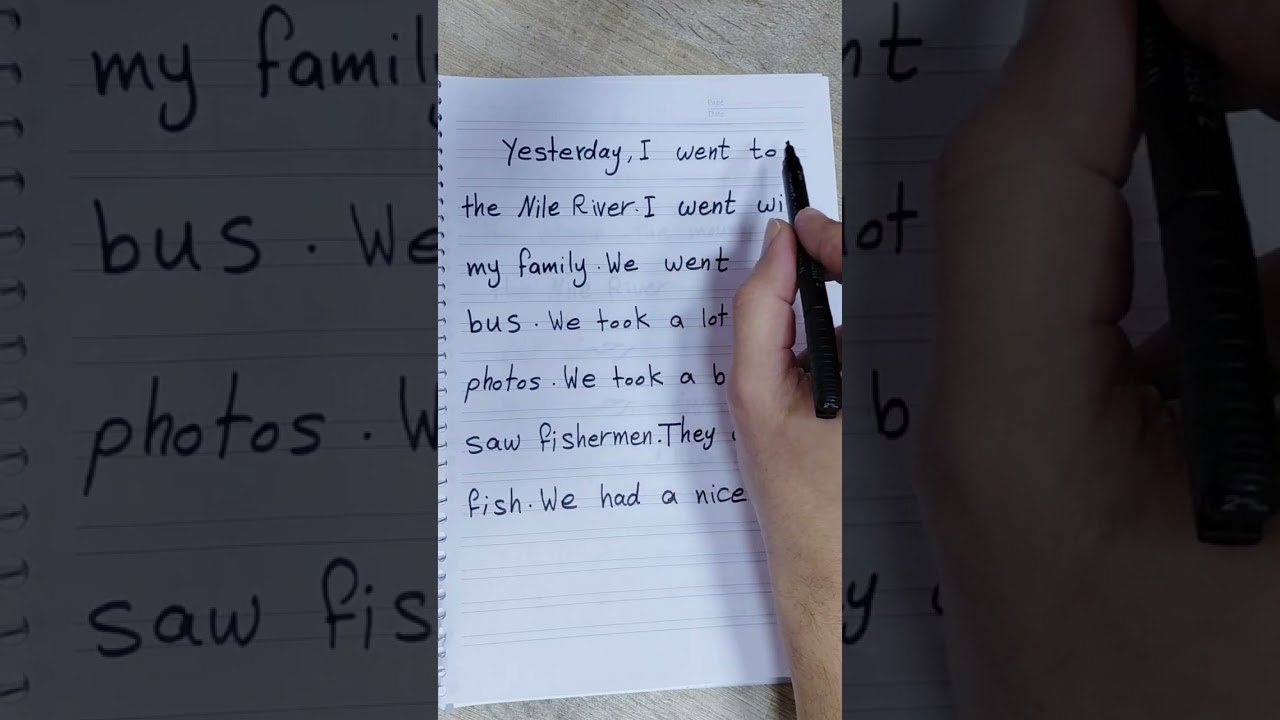 Page
Date
Yesterday, I went to
the Nile River. I went
my family. We went
bus. We took a lot
photos. We took a
saw fishermen. They
fish. We had a nice